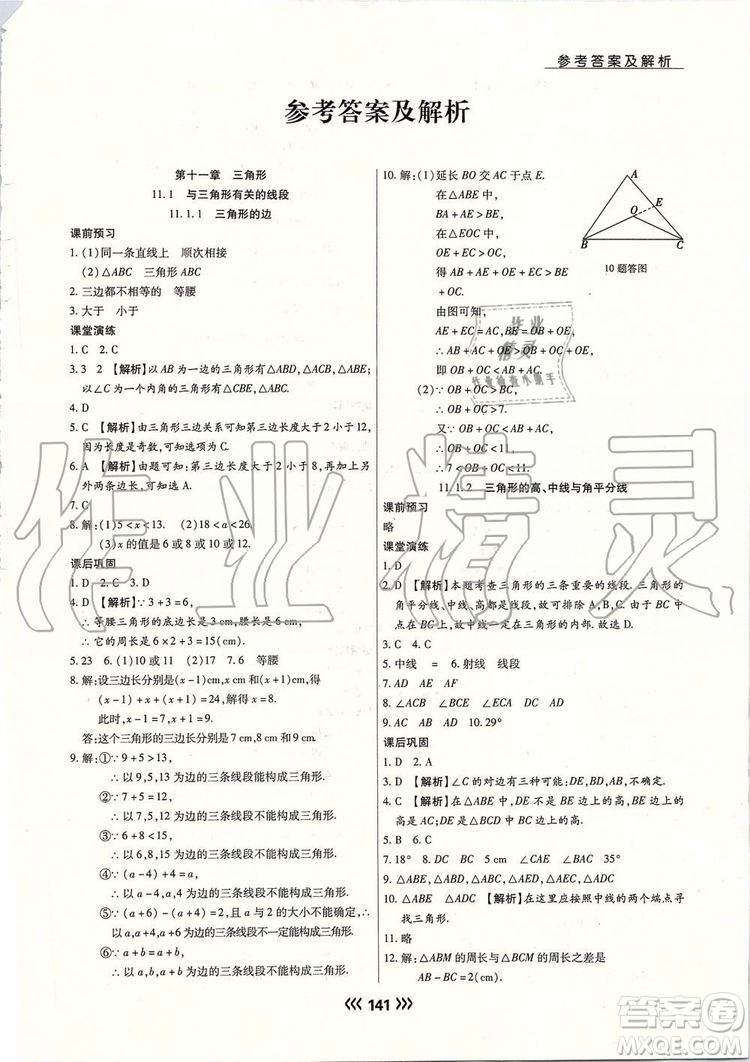 参考答案及解析
参考答案及解析
第十一章 三角形
11.1 与三角形有关的线段
11.1.1 三角形的边
课前预习
1.(1)同一条直线上 顺次相接
(2)△ABC 三角形ABC
2.三边都不相等的 等腰
3.大于 小于
课堂演练
1.C 2.C
3.3 2 【解析】以AB为一边的三角形有△ABD,△ABC,△ABE;
以∠C为一个内角的三角形有△CBE,△ABC.
4.D
5.C 【解析】由三角形三边关系可知第三边长度大于2小于12,
因为长度是奇数,可知选C.
6.A 【解析】由题可知:第三边长度大于2小于8,第三边长度
为偶数,故选A.
7.C
8.解:(1)5<x<13. (2)18<a<26.
(3)x的值是6或8或10或12.
课后巩固
1.D 2.C 3.D
4.D 【解析】∵3+3=6,
∴等腰三角形的底边长是3cm,腰长是6cm.
∴它的周长是6×2+3=15(cm).
5.23 6.(1)10或11 (2)17 7.6 等腰
8.解:设三边长分别是(x-1)cm,x cm和(x+1)cm,得
(x-1)+x+(x+1)=24,解得x=8.
此时,x-1=7,x+1=9.
答:这个三角形的三边长分别是7 cm,8 cm和9 cm.
9.解:①∵9+5>13,
∴以9,5,13为边的三条线段能构成三角形.
②∵7+5=12,
∴以7,5,12为边的三条线段不能构成三角形.
③∵6+8<15,
∴以6,8,15为边的三条线段不能构成三角形.
④∵(a-4)+4=a,
∴以a,a-4,4为边的三条线段不能构成三角形.
⑤∵(a+6)-(a+2)=4,且a与4的大小不能确定,∴
以a+2,a+6,a为边的三条线段不一定能构成三角形.
⑥∵a+b=a+b,
∴以a,b,a+b为边的三条线段不能构成三角形.
10.解:(1)延长BO交AC于点E.
在△ABE中,
BA+AE>BE.
在△EOC中,
OE+EC>OC.
得AB+AE+OE+EC>BE
+OC.
由图可知,
AE+EC=AC,BE=OB+OE,
∴AB+AC+OE>OB+OE+OC,
即OB+OC<AB+AC.
(2)∵OB+OC>BC,
∴OB+OC>7.
又∵OB+OC<AB+AC,
∴OB+OC<11.
∴7<OB+OC<11.
A
O
E
B
C
10题答图
11.1.2 三角形的高、中线与角平分线
课前预习
略
课堂演练
1.D
2.D 【解析】本题考查三角形的三条重要的线段.三角形的
角平分线、中线、高都是线段,故可排除A,B,C.由于BC中
点在BC上,故中线一定在三角形的内部.故选D.
3.C 4.C
5.中线 = 6.射线 线段
7.AD AE AF
8.∠ACB ∠BCE ∠ECA DC AD
9.AC AB AD 10.29°
课后巩固
1.D 2.A
3.D 【解析】∠C的对边有三种可能:AE,AD,AB,不确定.
4.C 【解析】在△ABE中,DE不是BE边上的高,BE边上的
高是AC;DE是△ABE中AB边上的高.
5.B 6.C
7.18° 8.DC BD 5 cm ∠CAE ∠BAC 35°
9.△ABE,△ABD,△ABC,△AED,△AEC,△ADC
10.△ABE △ADC 【解析】在这里应按照中线的两个端点寻
找三角形.
11.略
12.解:△ABM的周长与△BCM的周长之差是
AB-BC=2(cm).
《《 141 》》
作业精灵
作业
精灵
作业检查小助手
答案圈
MXQE.COM